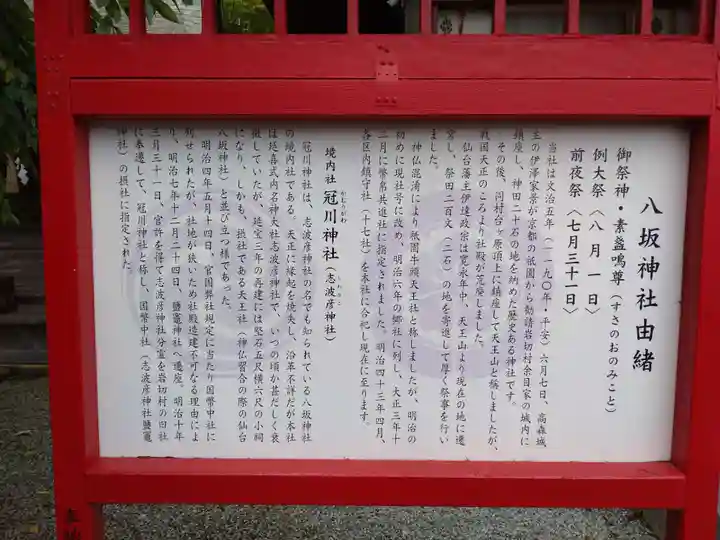 八坂神社由緒
御祭神・素盞嗚尊（すさのおのみこと）
例大祭〈八月一日〉
前夜祭〈七月三十一日〉
当社は文治五年（一一九〇年・平安）六月七日、高森城
主の伊澤家景が京都の祇園から勧請岩切村余目家の城内に
鎮座し、神田二十石の地を納めた歴史ある神社です。
その後、河村台ヶ原頂上に鎮座して天王山と称しましたが、
戦国天正のころより社殿が荒廃しました。
仙台藩主伊達政宗は寛永年中、天王山より現在の地に遷
宮し、祭田二百文（二石）の地を寄進して厚く祭事を行い
ました。
神仏混淆により祇園牛頭天王社と称しましたが、明治の
初めに現社号に改め、明治六年の郷社に列し、大正三年十
二月に幣帛共進社に指定されました。明治四十三年四月、
各区内鎮守社（十七社）を本社に合祀し現在に至ります。
境内社 冠川神社（志波彦神社）
かむりがわ
しわひこ
冠川神社は、志波彦神社の名でも知られている八坂神社
の境内社である。天正に縁起を焼失し、沿革不詳だが本社
は延喜式内名神大社志波彦神社で、いつの頃か甚だしく衰
微していたが、延宝三年の再建には堅石五尺横六尺の小祠
になり、しかも、摂社である天王社（神仏習合の際の仙台
八坂神社）と並び立つ様であった。
明治四年五月十四日、官国弊社規定に当たり国幣中社に
列せられたが、社地が狭いため社殿造建不可なる理由によ
り、明治七年十二月二十四日、鹽竈神社へ遷座。明治十年
三月三十一日、官許を得て志波彦神社分霊を岩切村の旧社
に奉遷して、冠川神社と称し、国幣中社（志波彦神社鹽竈
神社）の摂社に指定された。